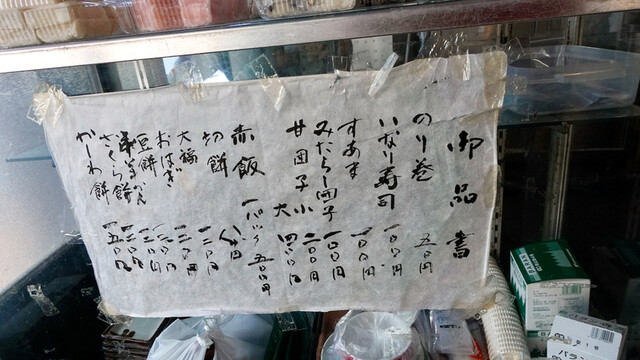 御品書
のり巻 五〇円
いなり寿司 一〇〇円
すあま 一〇〇円
みたらし団子 一〇〇円
甘団子 小 二〇〇円
大 四〇〇円
赤飯 一パック 五〇〇円
切餅 八〇円
大福 一二〇円
おはぎ 一二〇円
豆餅 一二〇円
さくら餅 一五〇円
かしわ餅 一五〇円
バラン